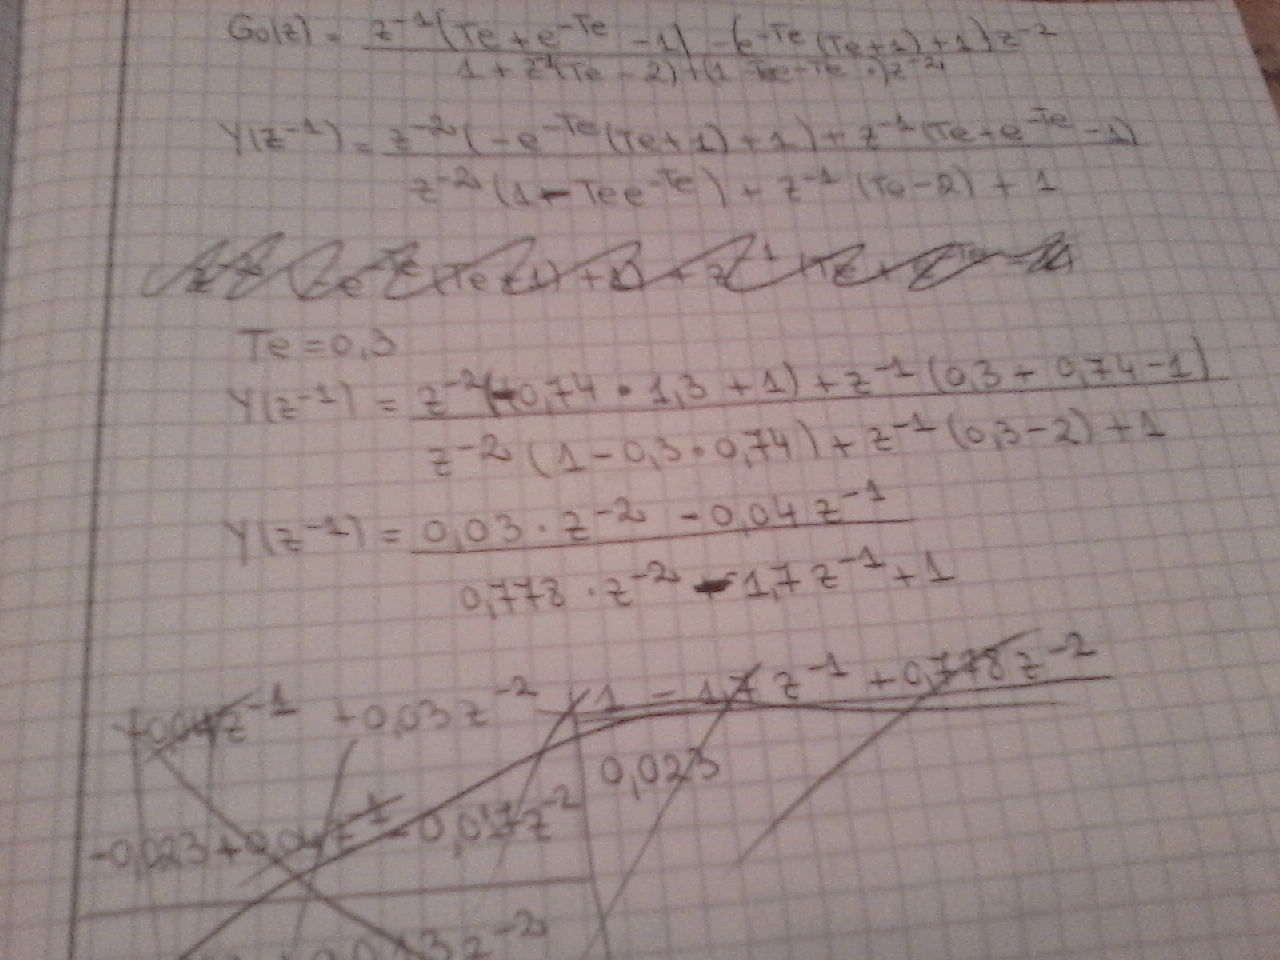 G₀(z) = z⁻¹(Te + e^-Te - 1) - (e^-Te (Te+1) + 1) z⁻²
1 + z⁻¹(Te - 2) + (1
Y(z⁻¹) = z⁻²(-e^-Te (Te+1) + 1) + z⁻¹(Te + e^-Te - 1)
z⁻²(1 - Te e^-Te) + z⁻¹(Te - 2) + 1
Te = 0,3
Y(z⁻¹) = z⁻²(-0,74 · 1,3 + 1) + z⁻¹(0,3 + 0,74 - 1)
z⁻²(1 - 0,3 · 0,74) + z⁻¹(0,3 - 2) + 1
Y(z⁻¹) = 0,03 · z⁻² - 0,04 z⁻¹
0,778 · z⁻² - 1,7 z⁻¹ + 1
+0,04 z⁻¹ + 0,03 z⁻² 1 - 1,7 z⁻¹ + 0,778 z⁻²
0,023
-0,023 + 0,04 z⁻¹ - 0,017 z⁻²
z⁻²